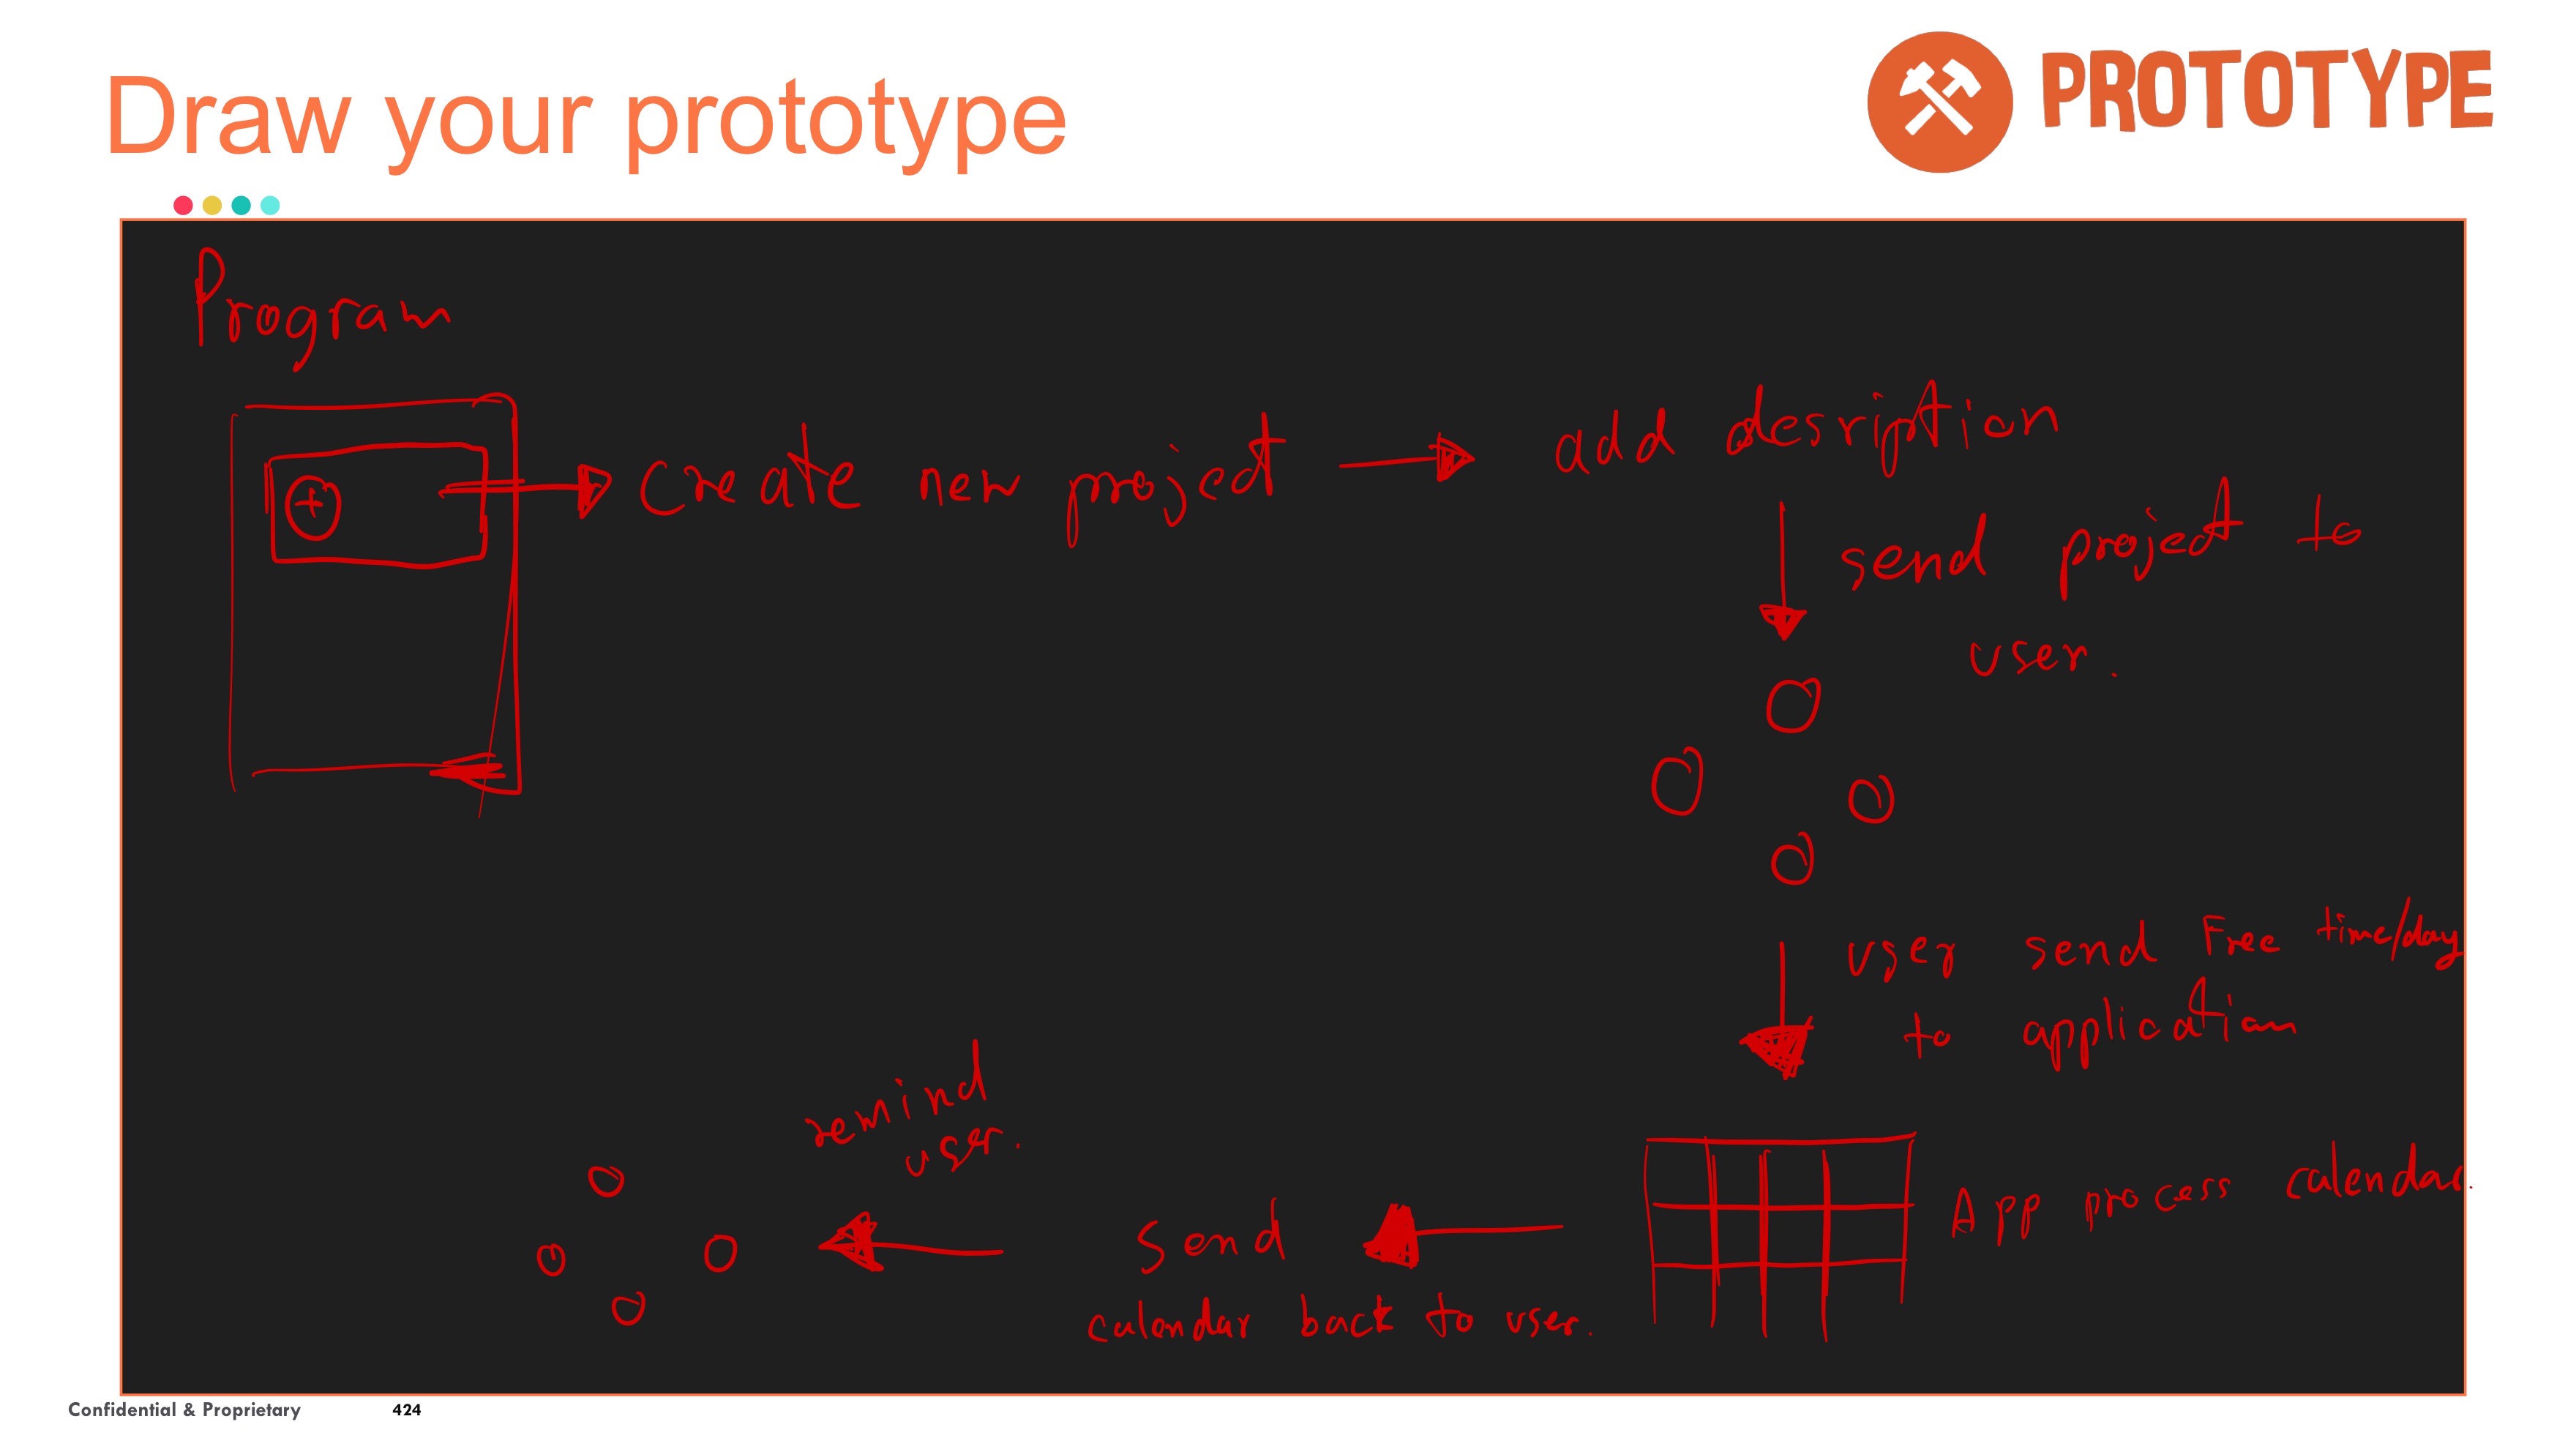 Draw your prototype
PROTOTYPE
Program
Create new project
add desription
send project to
user.
user send Free time/day
to application
App process calendar.
Send
calendar back to user.
remind
user.
Confidential & Proprietary
424